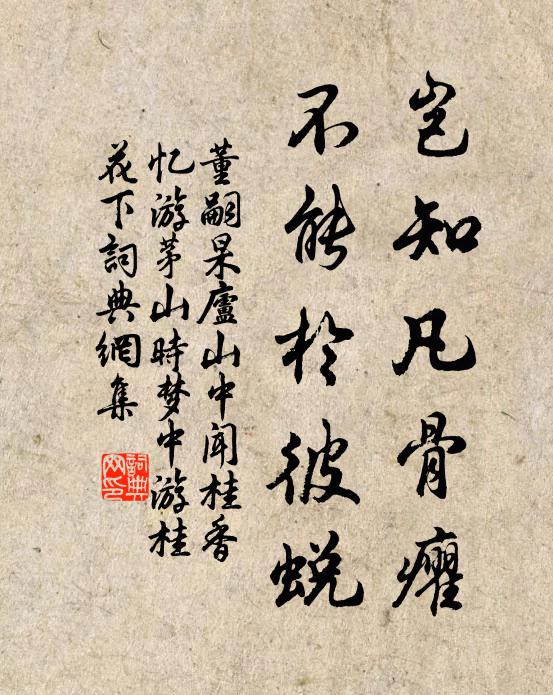 岂知凡骨癯
不能於彼蜕
董嗣杲廬山中闻桂香
忆游茅山時梦中游桂
花下詞典網集
詞典网印